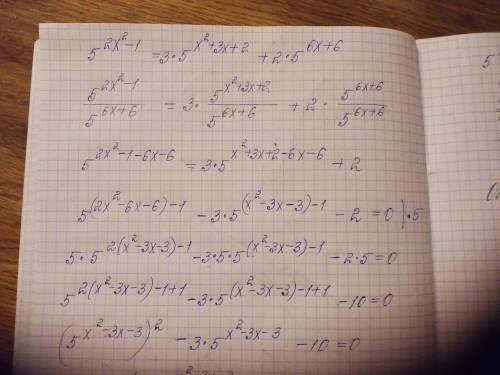 5^{2x^2-1} = 3·5^{x^2+3x+2} + 2·5^{6x+6}
\frac{5^{2x^2-1}}{5^{6x+6}} = 3·\frac{5^{x^2+3x+2}}{5^{6x+6}} + 2·\frac{5^{6x+6}}{5^{6x+6}}
5^{2x^2-1-6x-6} = 3·5^{x^2+3x+2-6x-6} + 2
5^{(2x^2-6x-6)-1} - 3·5^{(x^2-3x-3)-1} - 2 = 0 )·5
5·5^{2(x^2-3x-3)-1} - 3·5·5^{(x^2-3x-3)-1} - 2·5 = 0
5^{2(x^2-3x-3)-1+1} - 3·5^{(x^2-3x-3)-1+1} - 10 = 0
(5^{x^2-3x-3})^2 - 3·5^{x^2-3x-3} - 10 = 0